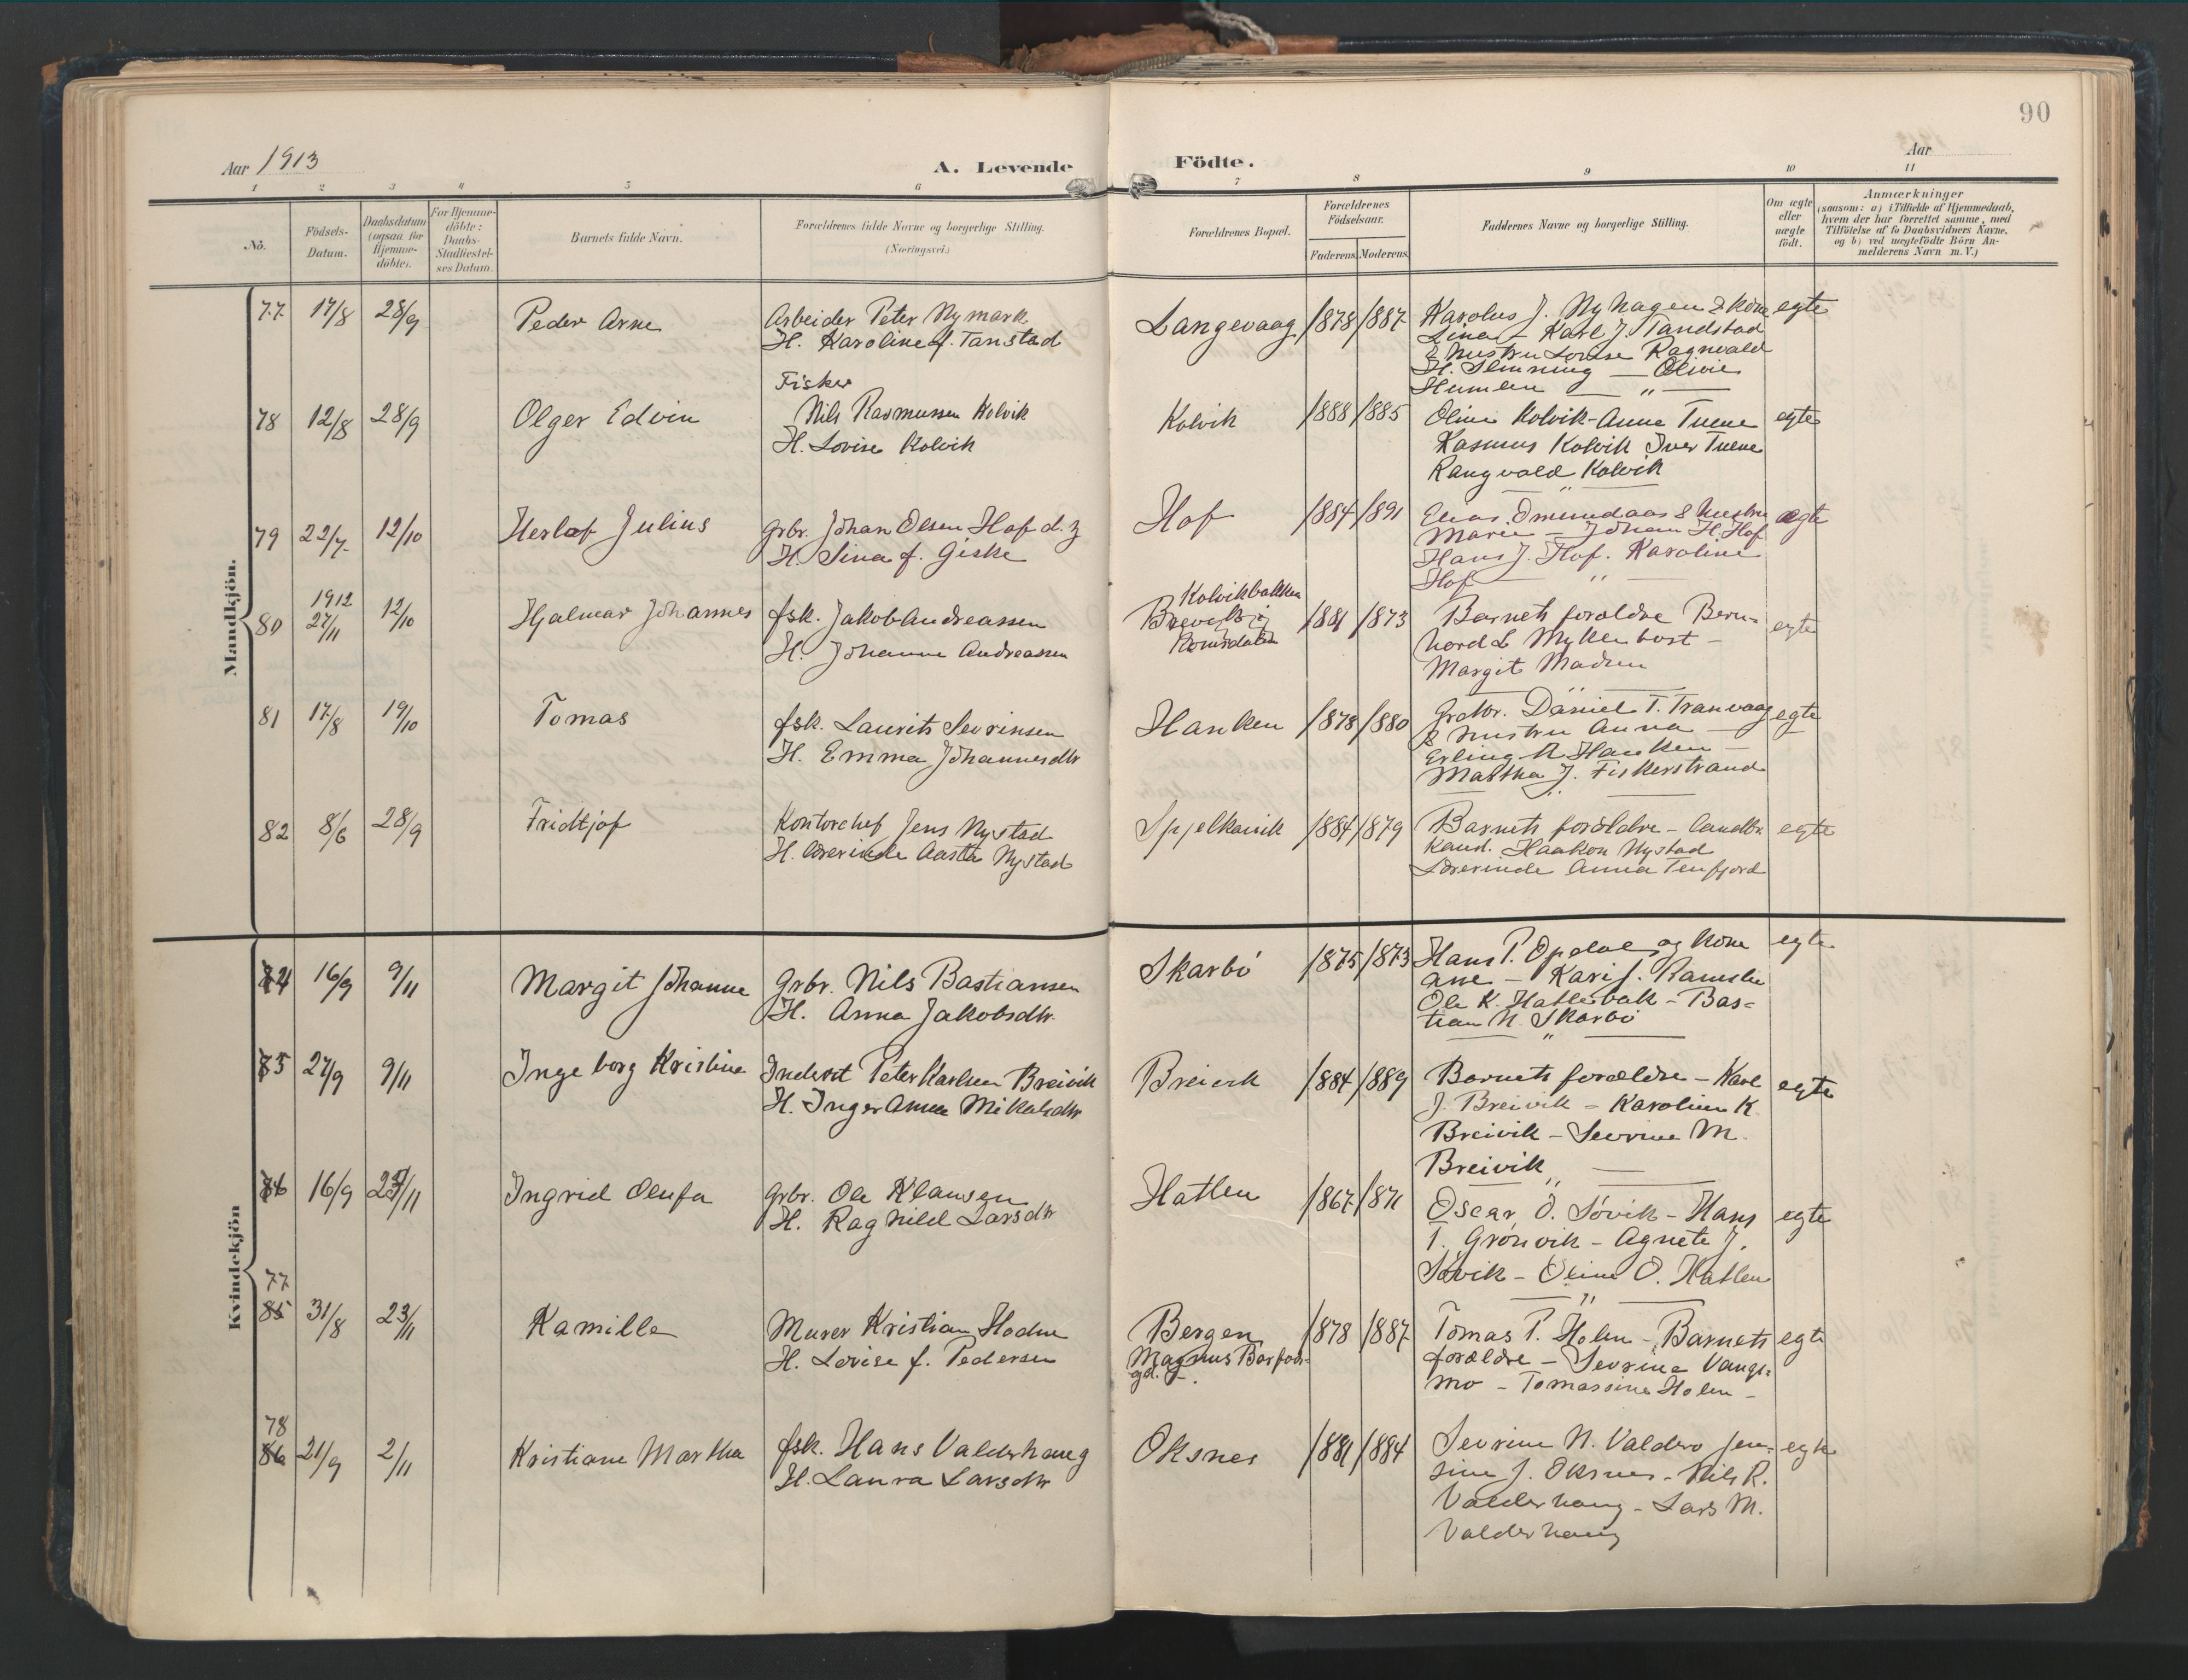 90
Aar 1913
A. Levende Födte.
Aar
1 2 3 4 5 6 7 8 9 10 11
No.
Födsels-Datum.
Daabsdatum (ogsaa for Hjemme-döbte).
For Hjemme-döbte: Daabs-Stadfæstel-ses Datum.
Barnets fulde Navn.
Forældrenes fulde Navne og borgerlige Stilling. (Næringsvei.)
Forældrenes Bopæl.
Forældrenes Födselsaar.
Faderens. Moderens.
Faddernes Navne og borgerlige Stilling.
Om ægte eller uægte födt.
Anmærkninger
(saasom: a) i Tilfælde af Hjemmedaab, hvem der har forrettet samme, med Tilföielse af to Daabsvidners Navne, og b) ved uægtefödte Börn An-melderens Navn m. V.)
Mandkjön.
77 17/8 28/9 Peder Arne
Arbeider Peter Nymark
H. Karoline f. Tanstad
Langevaag 1878 1887
Karolus J. Nyhagen & kone
Lina - Karl J. Tandstad
& hustru Lovise Ragnvald
H. Slinning - Olivie
Humlen - " -
egte
78 12/8 28/9 Olger Edvin
Fisker
Nils Rasmussen Kolvik
H. Lovise Kolvik
Kolvik 1888 1885
Oline Kolvik - Anna Tuene
Rasmus Kolvik Iver Tuene
Rangvald Kolvik
"
egte
79 22/7 12/10 Herlof Julius
Grbr. Johan Olsen Hof d. z
H. Sina f. Giske
Hof 1884 1891
Elias Omundaas & hustru
Marie - Johan H. Hof
Hans J. Hof. Karoline
Hof "
ægte
80 1912 27/11 12/10 Hjalmar Johannes
fsk. Jakob Andreassen
H. Johanne Andreassen
Kolvikbakken
Breivik i
Romsdalen
1881 1873
Barnets foroldre Bern-
hard L Myklebost -
Margit Madsen
egte
81 17/8 19/10 Tomas
fsk. Laurits Sevrinsen
H. Emma Johannesdtr
Hanken 1878 1880
Grdbr. Daniel T. Tranvaag
& hustru Anna -
Erling A Hanken -
Martha J. Fiskerstrand
egte
82 8/6 28/9 Fridtjof
Kontorchef Jens Nystad
H. Lærerinde Aasta Nystad
Spjelkavik 1884 1879
Barnets foræeldre - Landbr.
kand. Haakon Nystad
Lærerinde Anna Tenfjord
egte
Kvindekjön
74 16/9 9/11 Margit Johanne
Grbr. Nils Bastiansen
H. Anna Jakobsdtr.
Skarbö 1875 1873
Hans P. Opdal og kone
ane - Kari J. Ramstu
Ole K. Hatlebak - Bas-
tian N. Skarbö
"
egte
75 27/9 9/11 Ingeborg Kristine
Inderst Peter Karlsen Breivik
H. Inger Anna Mikalsdtr
Breivik 1884 1889
Barnets forældre - Karl
J. Breivik - Karoline K.
Breivik - Sevrine M.
Breivik "
egte
76 16/9 23/11 Ingrid Olufa
Grbr. Ole Klausen
H. Ragnild Larsdtr
Hatlen 1867 1871
Oscar O. Sövik - Hans
T. Grönvik - Agnete J.
Sövik - Oline O. Hatlen
"
egte
77
85 31/8 23/11 Kamilla
Murer Kristian Hodne
H. Lovise f. Pedersen
Bergen
Magnus Barfods-
gd.
1878 1887
Tomas P. Holen - Barnets
forældre - Sevrine Vangs-
mo - Tomassine Holen -
egte
78
86 21/9 2/11 Kristiane Martha
fsk. Hans Valderhaug
H. Laura Larsdtr
Oksnes 1881 1884
Sevrine N. Valderö Jen-
sine J. Oksnes - Nils R.
Valderhaug - Lars M.
Valderhaug
egte